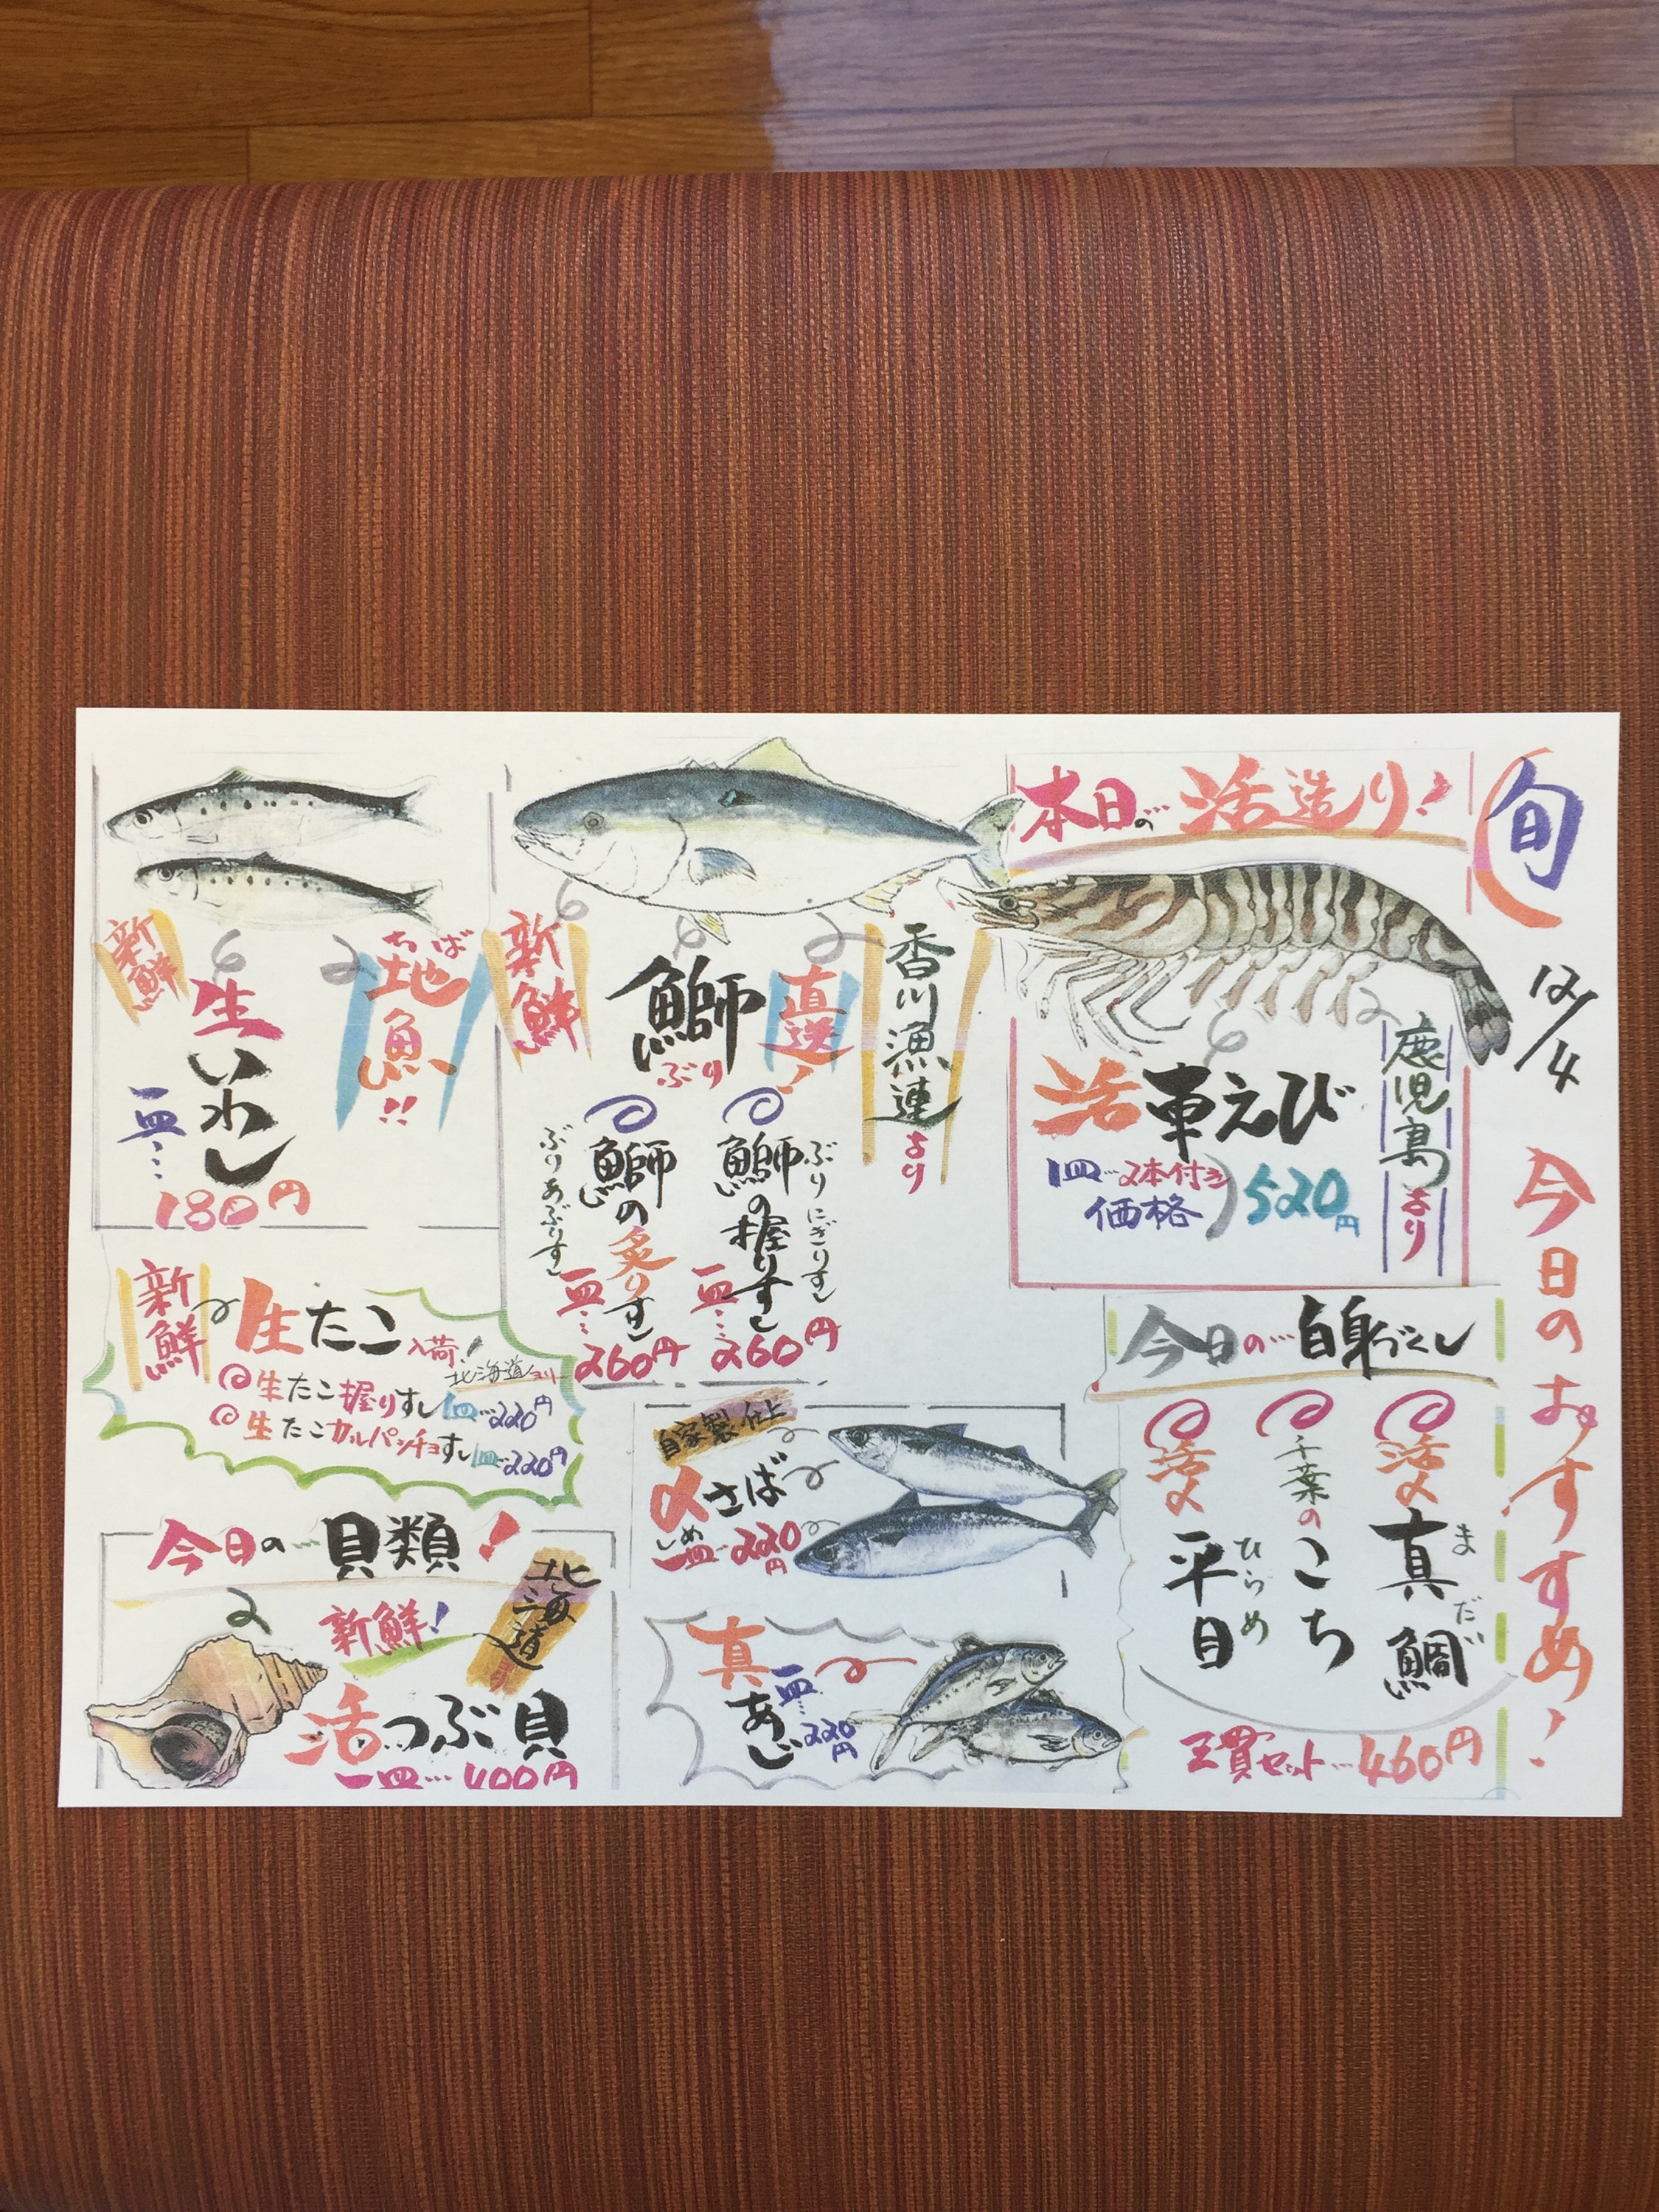 旬
12/4
今日のおすすめ!
本日の…活造り!
鹿児島より
活車えび
1皿…2本付き
価格
520円
今日の…白身づくし
活〆真鯛
まだい
千葉のこち
活〆平目
ひらめ
三貫セット…460円
香川漁連より
直送!
鰤
ぶり
新鮮
鰤の握りすし
ぶりにぎりすし
一皿…260円
鰤の炙りすし
ぶりあぶりすし
一皿…260円
自家製仕上
〆さば
しめ
一皿…220円
真あじ
一皿…220円
ちば
地魚!!
新鮮
生いわし
一皿…
180円
新鮮
生たこ入荷!
北海道ヨリ
生たこ握りすし1皿…220円
生たこカルパッチョすし1皿…220円
今日の…貝類!
北海道
新鮮!
活つぶ貝
一皿…400円